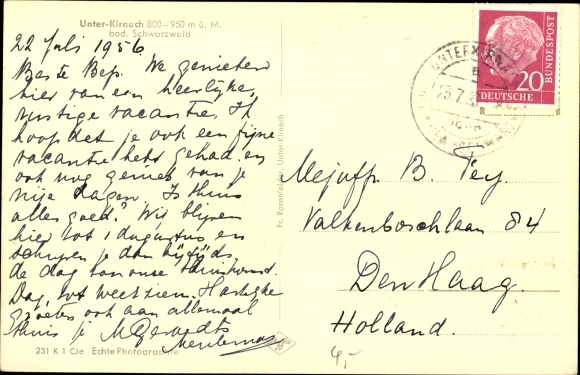 Unter-Kirnach 800-950 m ü. M.
bad. Schwarzwald
22 Juli 1956
Beste Bep. We genieten
hier van een heerlijke,
rustige vacantie. Ik
hoop dat je ook een fijne
vacantie hebt gehad en
ook nog geniet van je
vrije dagen. Is thuis
alles goed? Wij blijven
hier tot 1 augustus en
schrijven je dan bijtijds
de dag van onze thuiskomst.
Dag, tot weerziens. Hartelijke
groetes ook aan allemaal
thuis je
231 K 1 CJe Echte Photographie
Fr. Rosenfelder, Unter-Kirnach
20
DEUTSCHE
BUNDESPOST
Mejuffr. B. Pey.
Valkenboschlaan 84
Den Haag.
Holland.
4,-